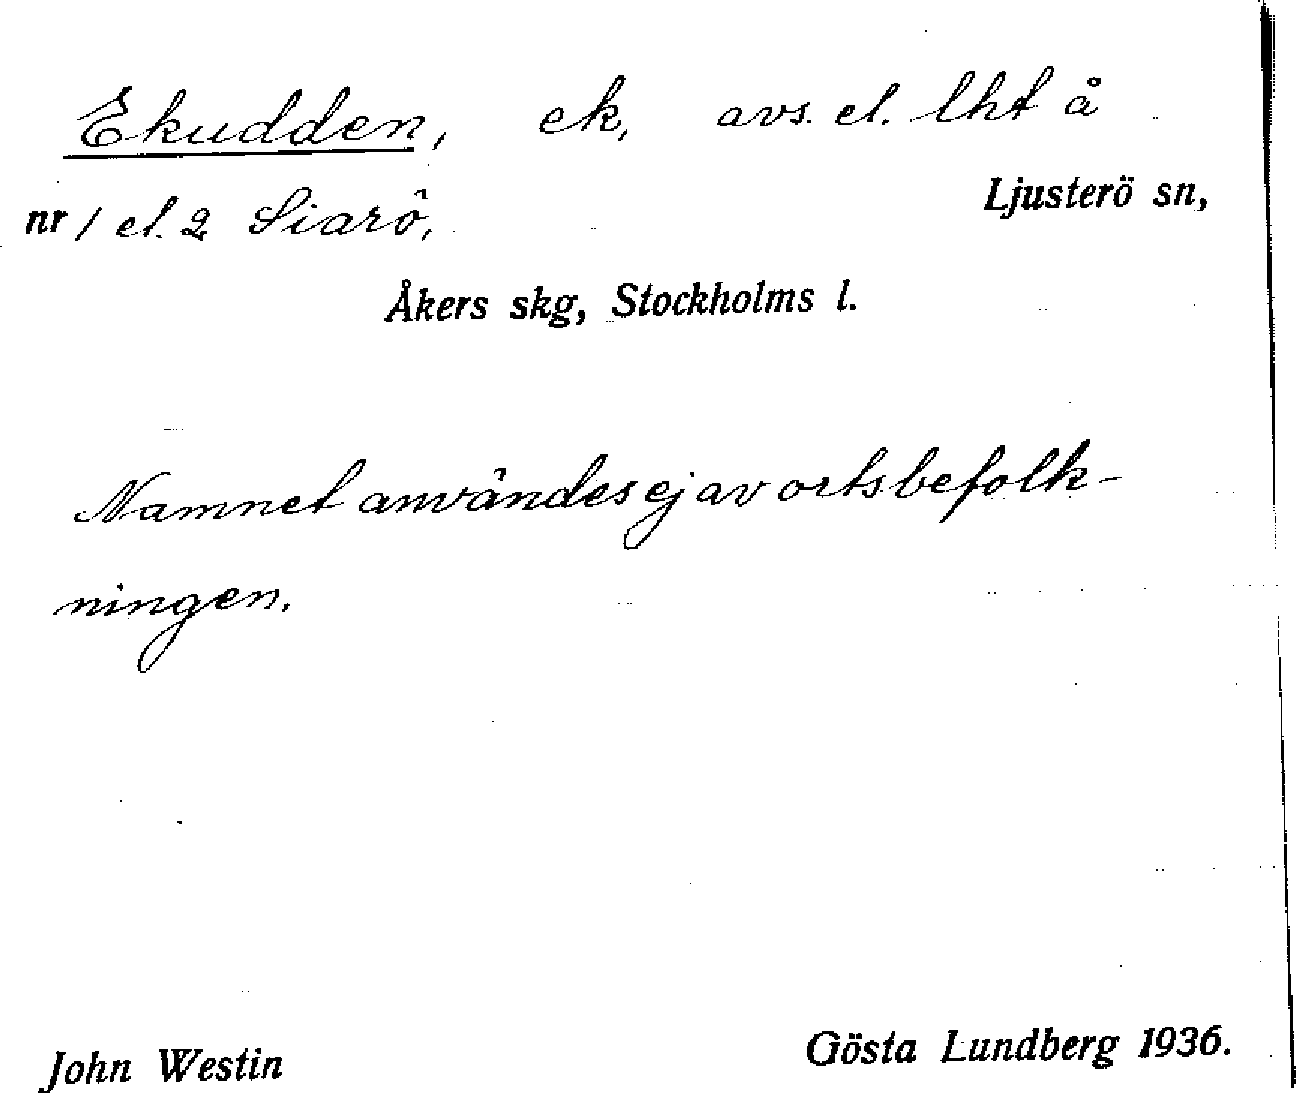 Ekudden, ek, avs. el. lht å
Ljusterö sn,
nr 1 el. 2 Siarö,
Åkers skg, Stockholms l.
Namnet användes ej av ortsbefolk-
ningen.
John Westin
Gösta Lundberg 1936.